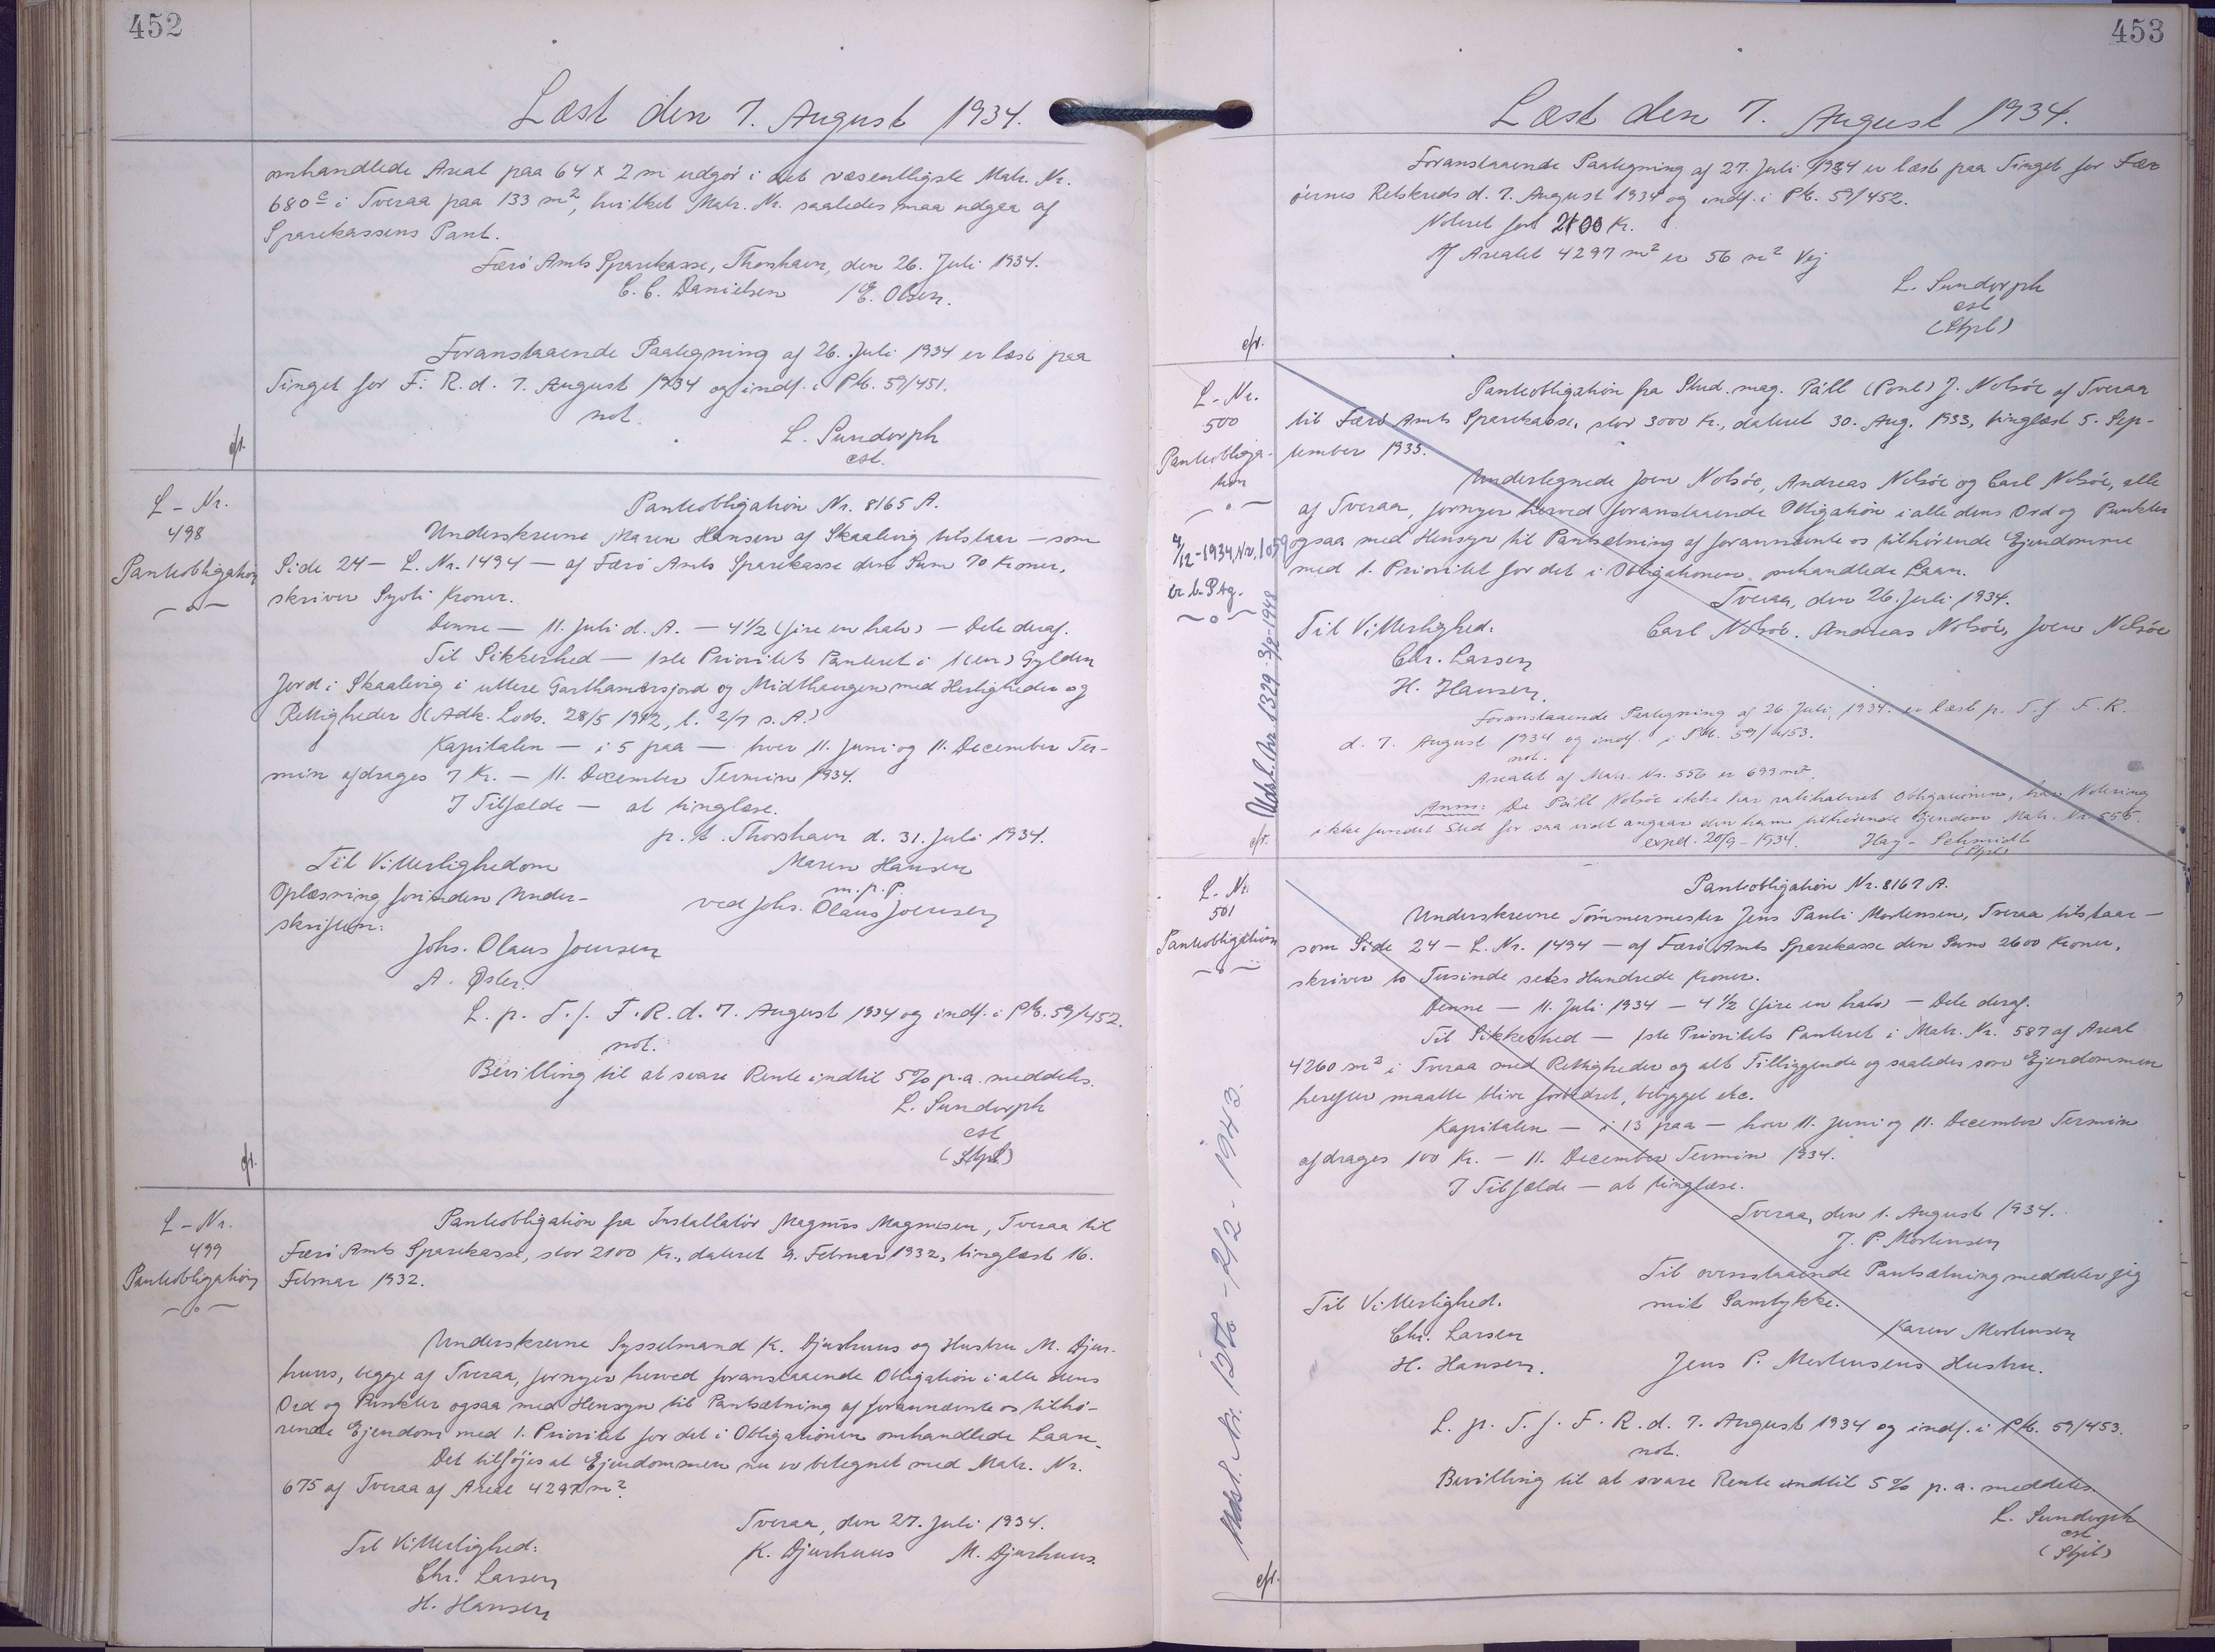 452
Læst den 7. August 1934.
omhandlede Areal paa 64 x 2 m udgør i det væsentligste Matr. Nr.
680c i Tveraa paa 133 m², hvilket Matr. Nr. saaledes maa udgaa af
Sparekassens Pant.
Færö Amts Sparekasse, Thorshavn, den 26. Juli 1934.
C. C. Danielsen / E. Olsen.
Foranstaaende Paategning af 26. Juli 1934 er læst paa
Tinget for F. R. d. 7. August 1934 og indf. i Pb. 59/451.
not.
L. Sundorph
cst.
cfr.
L-Nr.
498
Panteobligation
Panteobligation Nr. 8165 A.
Underskrevne Maren Hansen af Skaalevig tilstaar — som
Side 24 — L. Nr. 1494 — af Færö Amts Sparekasse den Sum 70 Kroner,
skriver Syvti Kroner.
Denne — 11. Juli d. A. — 4½ (fire en halv) — Dele deraf.
Til Sikkerhed — 1ste Prioritets Panteret i 1 (en) Gylden
Jord i Skaalevig i uttere Garthamarsjord og Midthaugen med Herligheder og
Rettigheder (Adk. Lods. 28/5 1912, l. 2/7 s. A.)
Kapitalen — i 5 paa — hver 11. Juni og 11. December Ter-
min afdrages 7 Kr. — 11. December Termin 1934.
I Tilfælde — at tinglæse.
p. t. Thorshavn d. 31. Juli 1934.
Til Vitterlighed om
Oplæsning forinden Under-
skriften:
Maren Hansen
m. p. P.
ved Johs. Olaus Joensen
Johs. Olaus Joensen
A. Øster.
L. p. T. f. F. R. d. 7. August 1934 og indf. i Pb. 59/452.
not.
Bevilling til at svare Rente indtil 5% p. a. meddeles.
L. Sundorph
cst
(Stpl)
cfr.
L-Nr.
499
Panteobligation
Panteobligation fra Installatör Magnus Magnusen, Tveraa til
Færö Amts Sparekasse, stor 2100 Kr., dateret 9. Februar 1932, tinglæst 16.
Februar 1932.
Underskrevne Sysselmand K. Djurhuus og Hustru M. Djur-
huus, begge af Tveraa, fornyer herved foranstaaende Obligation i alle dens
Ord og Punkter ogsaa med Hensyn til Pantsætning af forannævnte os tilhö-
rende Ejendom med 1. Prioritet for det i Obligationen omhandlede Laan.
Det tilföjes at Ejendommen nu er betegnet med Matr. Nr.
675 af Tveraa af Areal 4297 m².
Tveraa, den 27. Juli 1934.
Til Vitterlighed:
K. Djurhuus M. Djurhuus.
Chr. Larsen
H. Hansen
453
Læst den 7. August 1934.
Foranstaaende Paategning af 27. Juli 1934 er læst paa Tinget for Fær
öernes Retskreds d. 7. August 1934 og indf. i Pb. 59/452.
Noteret for 2100 Kr.
Af Arealet 4297 m² er 56 m² Vej
L. Sundorph
cst
(Stpl)
cfr.
L-Nr.
500
Panteobliga-
tion
4/12-1934, Nr. 1059
er l. Ptg.
Udsl. Nr. 1329 - 3/9-1948
Panteobligation fra Stud. mag. Páll (Poul) J. Nolsöe af Tveraa
til Færö Amts Sparekasse, stor 3000 Kr., dateret 30. Aug. 1933, tinglæst 5. Sep-
tember 1933.
Undertegnede Joen Nolsöe, Andreas Nolsöe og Carl Nolsöe, alle
af Tveraa, fornyer herved foranstaaende Obligation i alle dens Ord og Punkter
ogsaa med Hensyn til Pantsætning af forannævnte os tilhörende Ejendomme
med 1. Prioritet for det i Obligationen omhandlede Laan.
Tveraa, den 26. Juli 1934.
Til Vitterlighed:
Carl Nolsöe. Andreas Nolsöe, Joen Nolsöe
Chr. Larsen
H. Hansen.
Foranstaaende Paategning af 26. Juli, 1934. er læst p. T. f. F. R.
d. 7. August 1934 og indf. i Pb. 59/453.
not.
Arealet af Matr. Nr. 556 er 699 m².
Anm: Da Páll Nolsöe ikke har ratihaberet Obligationen, har Notering
ikke fundet Sted for saa vidt angaar den ham tilhörende Ejendom Matr. Nr. 555.
exped. 20/9-1934. Hay-Schmidt
(Stpl)
cfr.
L-Nr.
501
Panteobligation
Udsl. Nr. 1356 - 2/2 - 1943.
Panteobligation Nr. 8167 A.
Underskrevne Tömmermester Jens Pauli Mortensen, Tveraa tilstaar —
som Side 24 — L. Nr. 1494 — af Færö Amts Sparekasse den Sum 2600 Kroner,
skriver to Tusinde seks Hundrede Kroner.
Denne — 11. Juli 1934 — 4½ (fire en halv) — Dele deraf.
Til Sikkerhed — 1ste Prioritets Panteret i Matr. Nr. 587 af Areal
4260 m² i Tveraa med Rettigheder og alt Tilliggende og saaledes som Ejendommen
herefter maatte blive forbedret, bebygget etc.
Kapitalen — i 13 paa — hver 11. Juni og 11. December Termin
afdrages 100 Kr. — 11. December Termin 1934.
I Tilfælde — at tinglæse.
Tveraa, den 1. August 1934.
J. P. Mortensen
Til ovenstaaende Pantsætning meddeler jeg
Til Vitterlighed.
mit Samtykke.
Chr. Larsen
Karen Mortensen
H. Hansen.
Jens P. Mortensens Hustru.
L. p. T. f. F. R. d. 7. August 1934 og indf. i Pb. 59/453.
not.
Bevilling til at svare Rente indtil 5% p. a. meddeles
L. Sundorph
cst
(Stpl)
cfr.